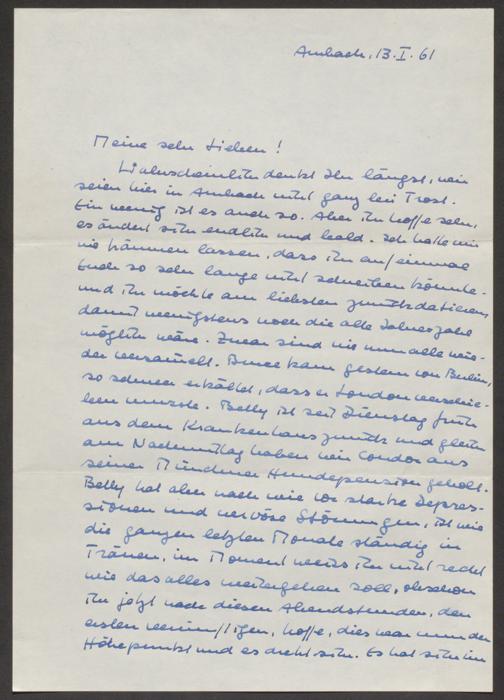 Ambach, 13.I.61
Meine sehr Lieben!
Wahrscheinlich denkt Ihr längst, wir
seien hier in Ambach nicht ganz bei Trost.
Ein wenig ist es auch so. Aber ich hoffe sehr,
es ändert sich endlich und bald. Ich hätte mir
nie träumen lassen, dass ich auf einmal
Euch so sehr lange nicht schreiben könnte –
und ich möchte am liebsten zurückdatieren,
damit wenigstens noch die alte Jahreszahl
möglich wäre. Zwar sind wir nun alle wie-
der versammelt. kam gestern von Berlin,
so schwer erkältet, dass er London verschie-
ben musste. Betty ist seit Dienstag früh
aus dem Krankenhaus zurück und gleich
am Nachmittag haben wir Condor aus
seiner Münchner Hundepension geholt.
Betty hat aber nach wie vor starke Depres-
sionen und nervöse Störungen, ist wie
die ganzen letzten Monate ständig in
Tränen, im Moment weiss ich nicht recht
wie das alles weitergehen soll, obschon
ich jetzt nach diesen Abendstunden, den
ersten vernünftigen, hoffe, dies war nun der
Höhepunkt und es dreht sich. Es hat sich im